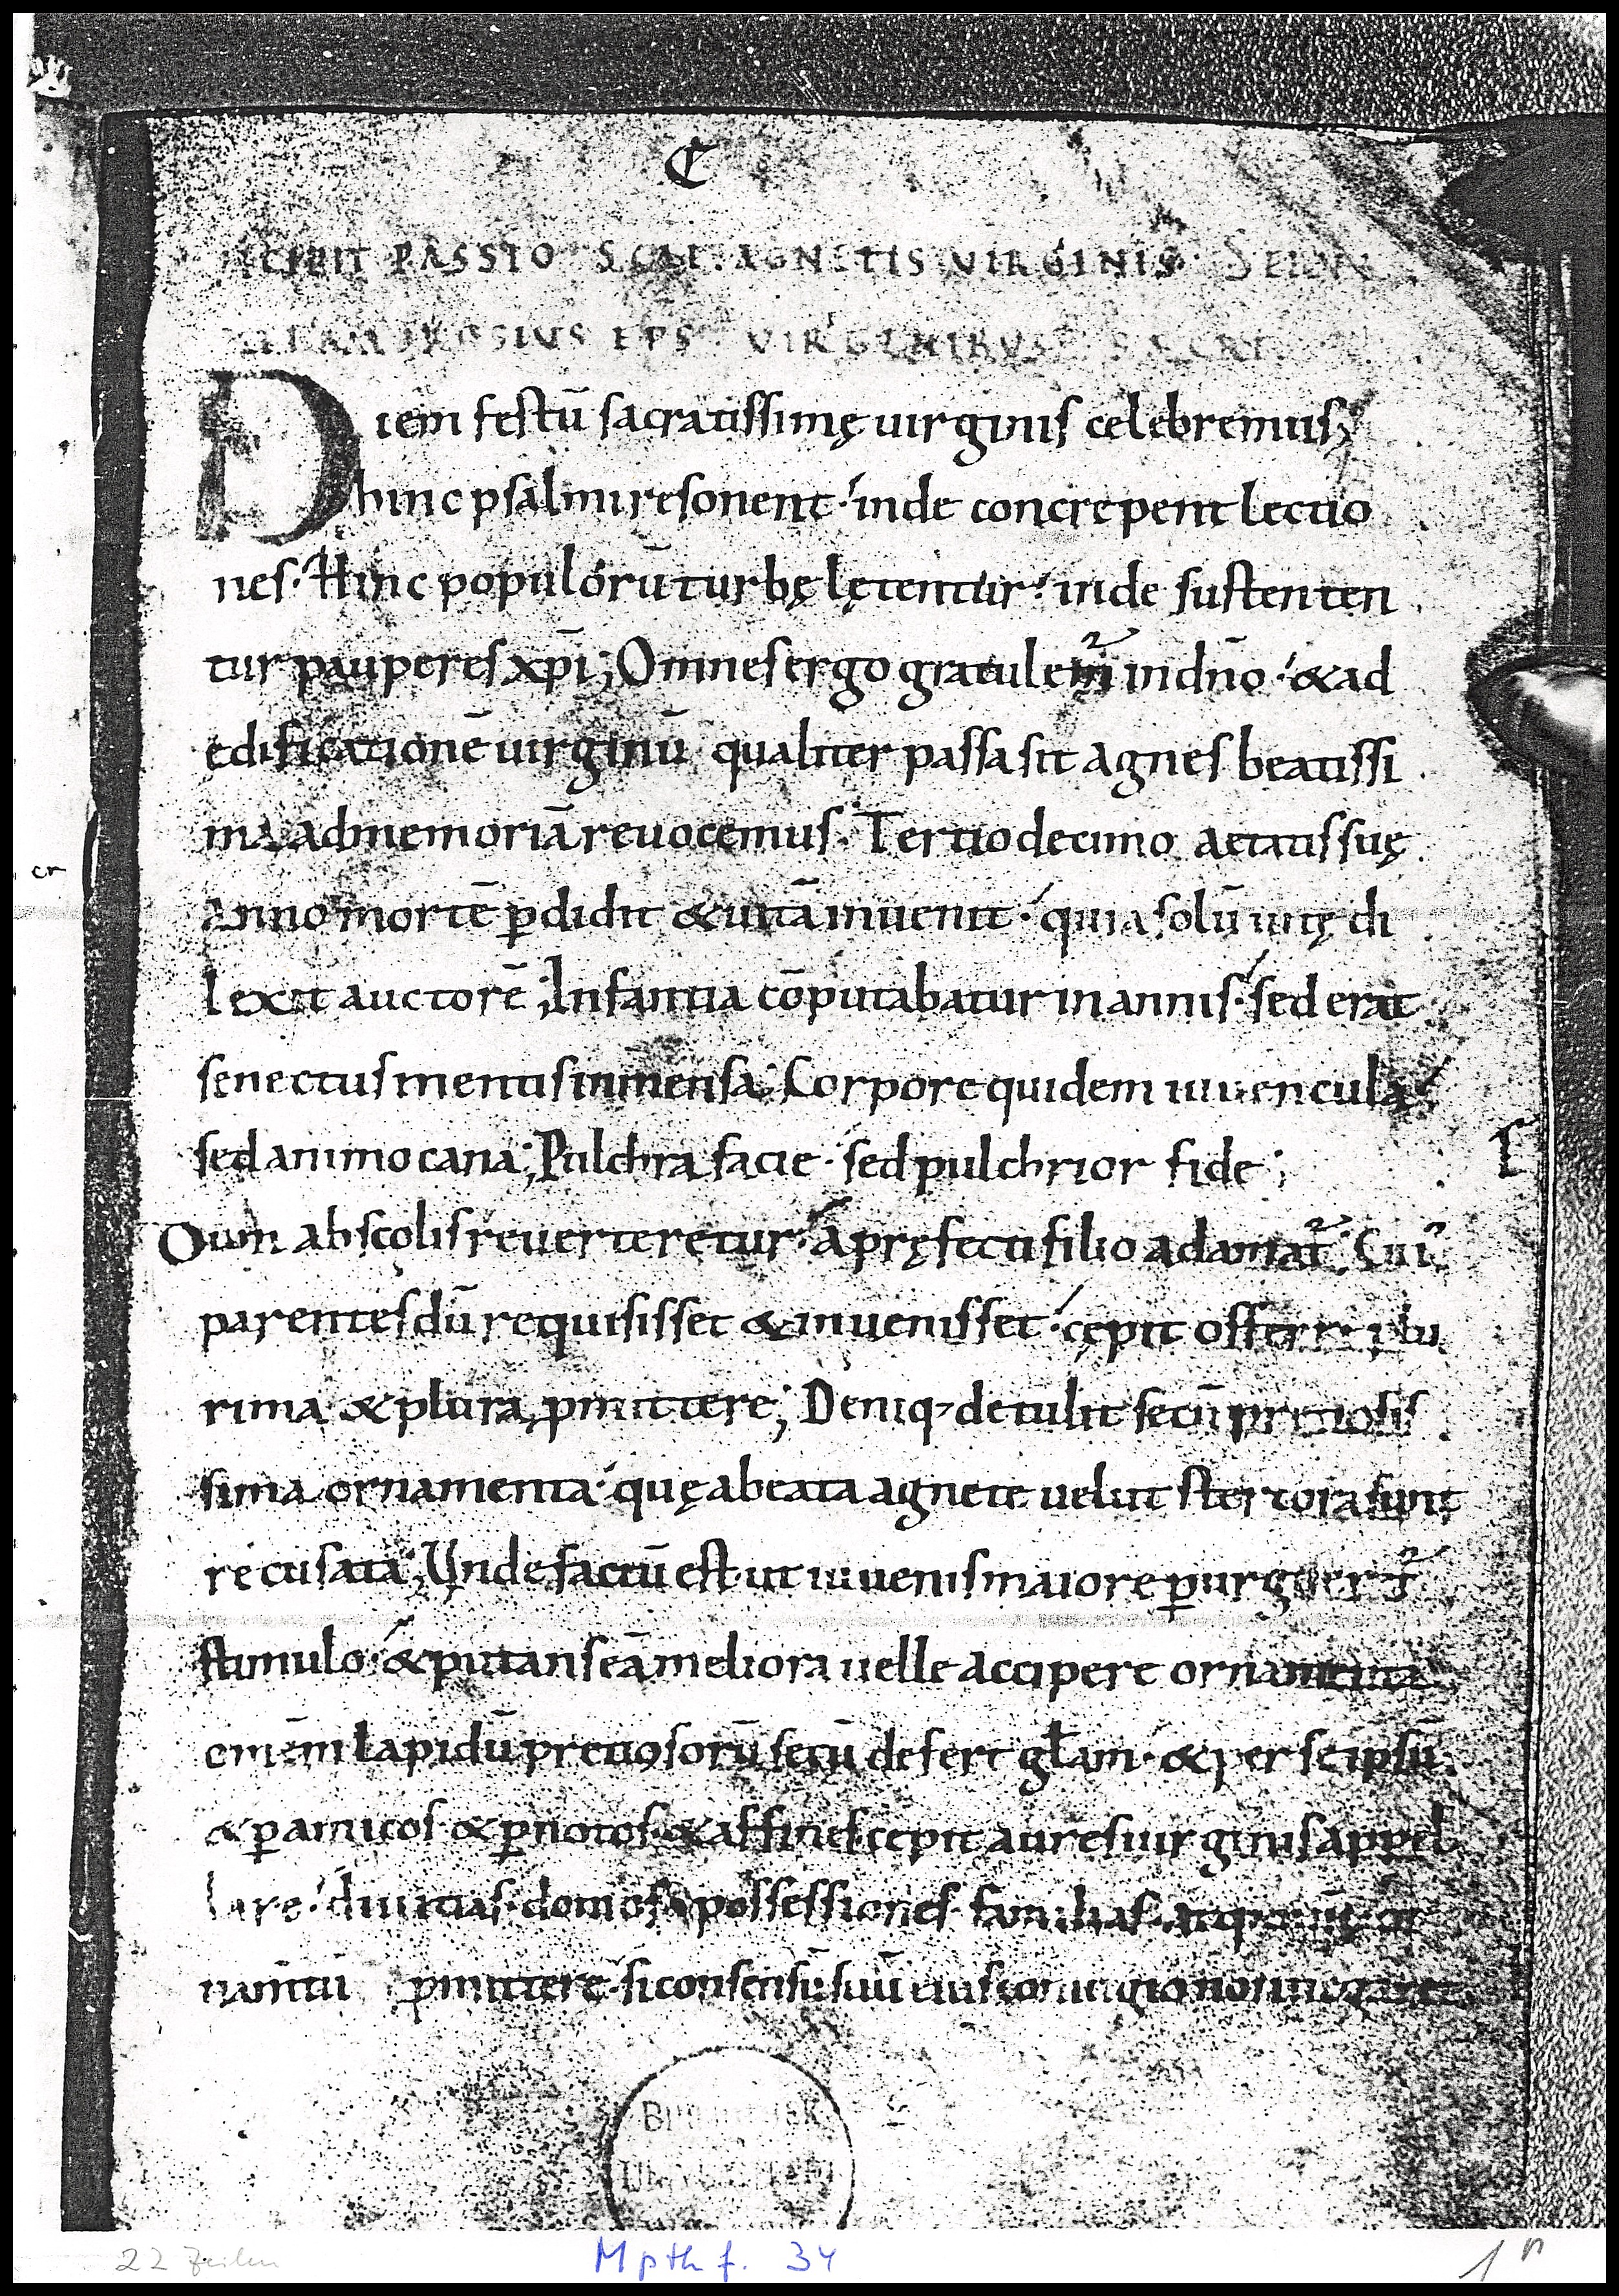 C
INCIPIT PASSIO SCAE AGNETIS VIRGINIS
AMBROSIUS EPS VIRGINIBUS SACRI
Diem festū sacratissimę uirginis celebremus;
hinc psalmi resonent· inde concrepent lectio
nes· Hinc populorū turbę lętentur· inde sustenten
tur pauperes xp̄i; Omnes ergo gratulem̄ in dn̄o· & ad
edificationē uirginū qualiter passa sit agnes beatissi
ma ad memoriā reuocemus· Tertio decimo aetatis suę
anno mortē ꝑdidit & uitā inuenit· quia solū uitę di
lexit auctorē; Infantia cōputabatur in annis· sed erat
senectus mentis inmensa; Corpore quidem iuuencula
sed animo cana; Pulchra facie· sed pulchrior fide;
Dum ab scolis reuerteretur· a pręfecti filio adamat̄· Cui'
parentes dū requisisset & inuenisset· cępit offerre plu
rima & plura ꝓmittere; Deniq; detulit secū pretiosis
sima ornamenta· quę a beata agnete uelut stercora sunt
recusata; Unde factū est ut iuuenis maiore ꝑurgeret̄
stimulo· & putans eā meliora uelle accipere ornamenta
omēm lapidū pretiosorū secū defert gl̄am· & per seipsū
& ꝑ amicos· & ꝑ notos· & affines cepit aures uirginis appel
lare· diuitias· domos· possessiones· familias· atq;
ꝓmittere· si consensū suū eius coniugio non negaret
BIBLIOTHEK
22 Zeilen
M p th f. 34
1r
cr